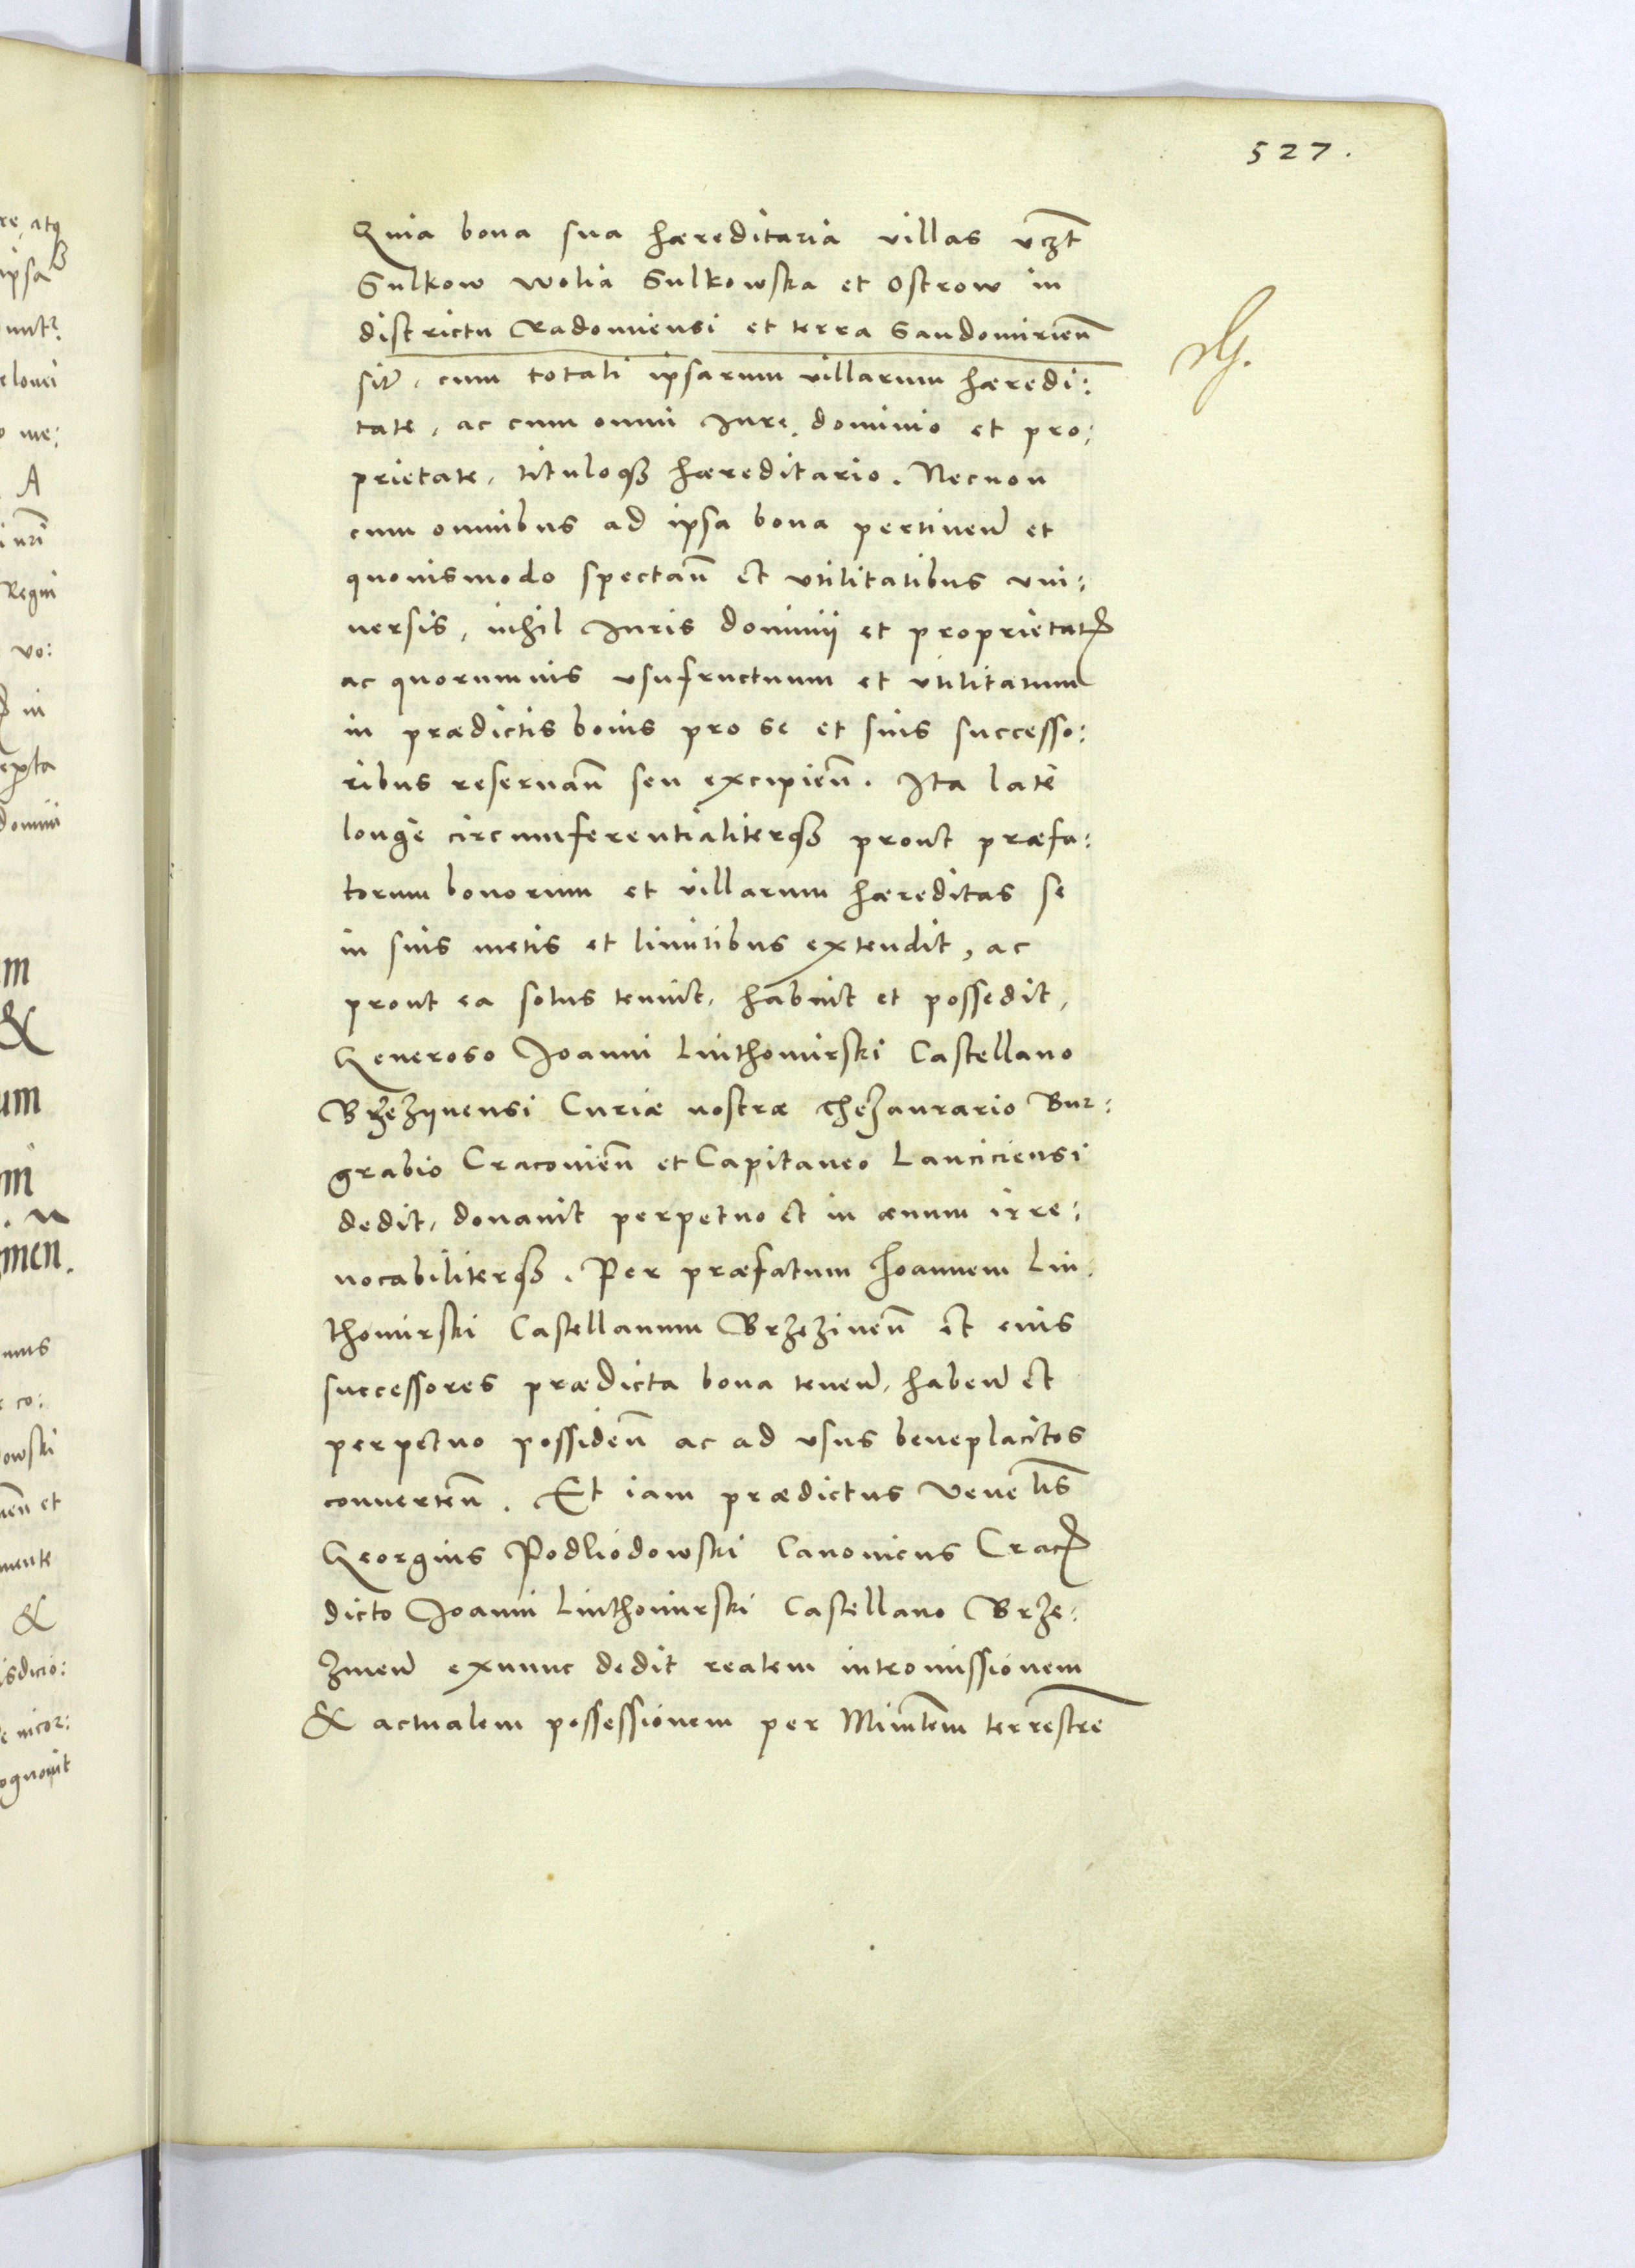 527.
Quia bona sua hæreditaria villas vczt
Sulkow wolia Sulkowska et Ostrow in
districtu Radomiensi et terra Sandomirieñ
sit, cum totali ipsarum villarum hæredi:
tate, ac cum omni Iure, dominio et pro:
prietate, tituloqȝ hæreditario. Necnon
cum omnibus ad ipsa bona pertineñ et
quouismodo spectañ et vtilitatibus vni:
uersis, nihil Iuris dominij et proprietatꝭ
ac quorumuis vsufructuum et vtilitatum
in prædictis bonis pro se et suis successo:
ribus reseruañ seu excipieñ. Ita late
longe circumferentialiterqȝ prout præfa:
torum bonorum et villarum hæreditas se
in suis metis et limitibus extendit, ac
prout ea solus tenuit, habuit et possedit,
Generoso Joanni Luthomirski Castellano
Brzezÿnensi Curiæ nostræ Thezaurario Bur:
grabio Cracouieñ et Capitaneo Lanciciensi
dedit, donauit perpetuo et in æuum irre:
uocabiliterqȝ. Per præfatum Joannem Lu:
thomirski Castellanum Brzezineñ et eius
successores prædicta bona teneñ, habeñ et
perpetuo possideñ ac ad vsus beneplacitos
conuerteñ. Et iam prædictus Venelis
Georgius Podliodowski Canonicus Cracꝭ
dicto Joanni Luthomirski Castellano Brze:
zineñ exnunc dedit realem intromissionem
& actualem possessionem per Mintem terrestre